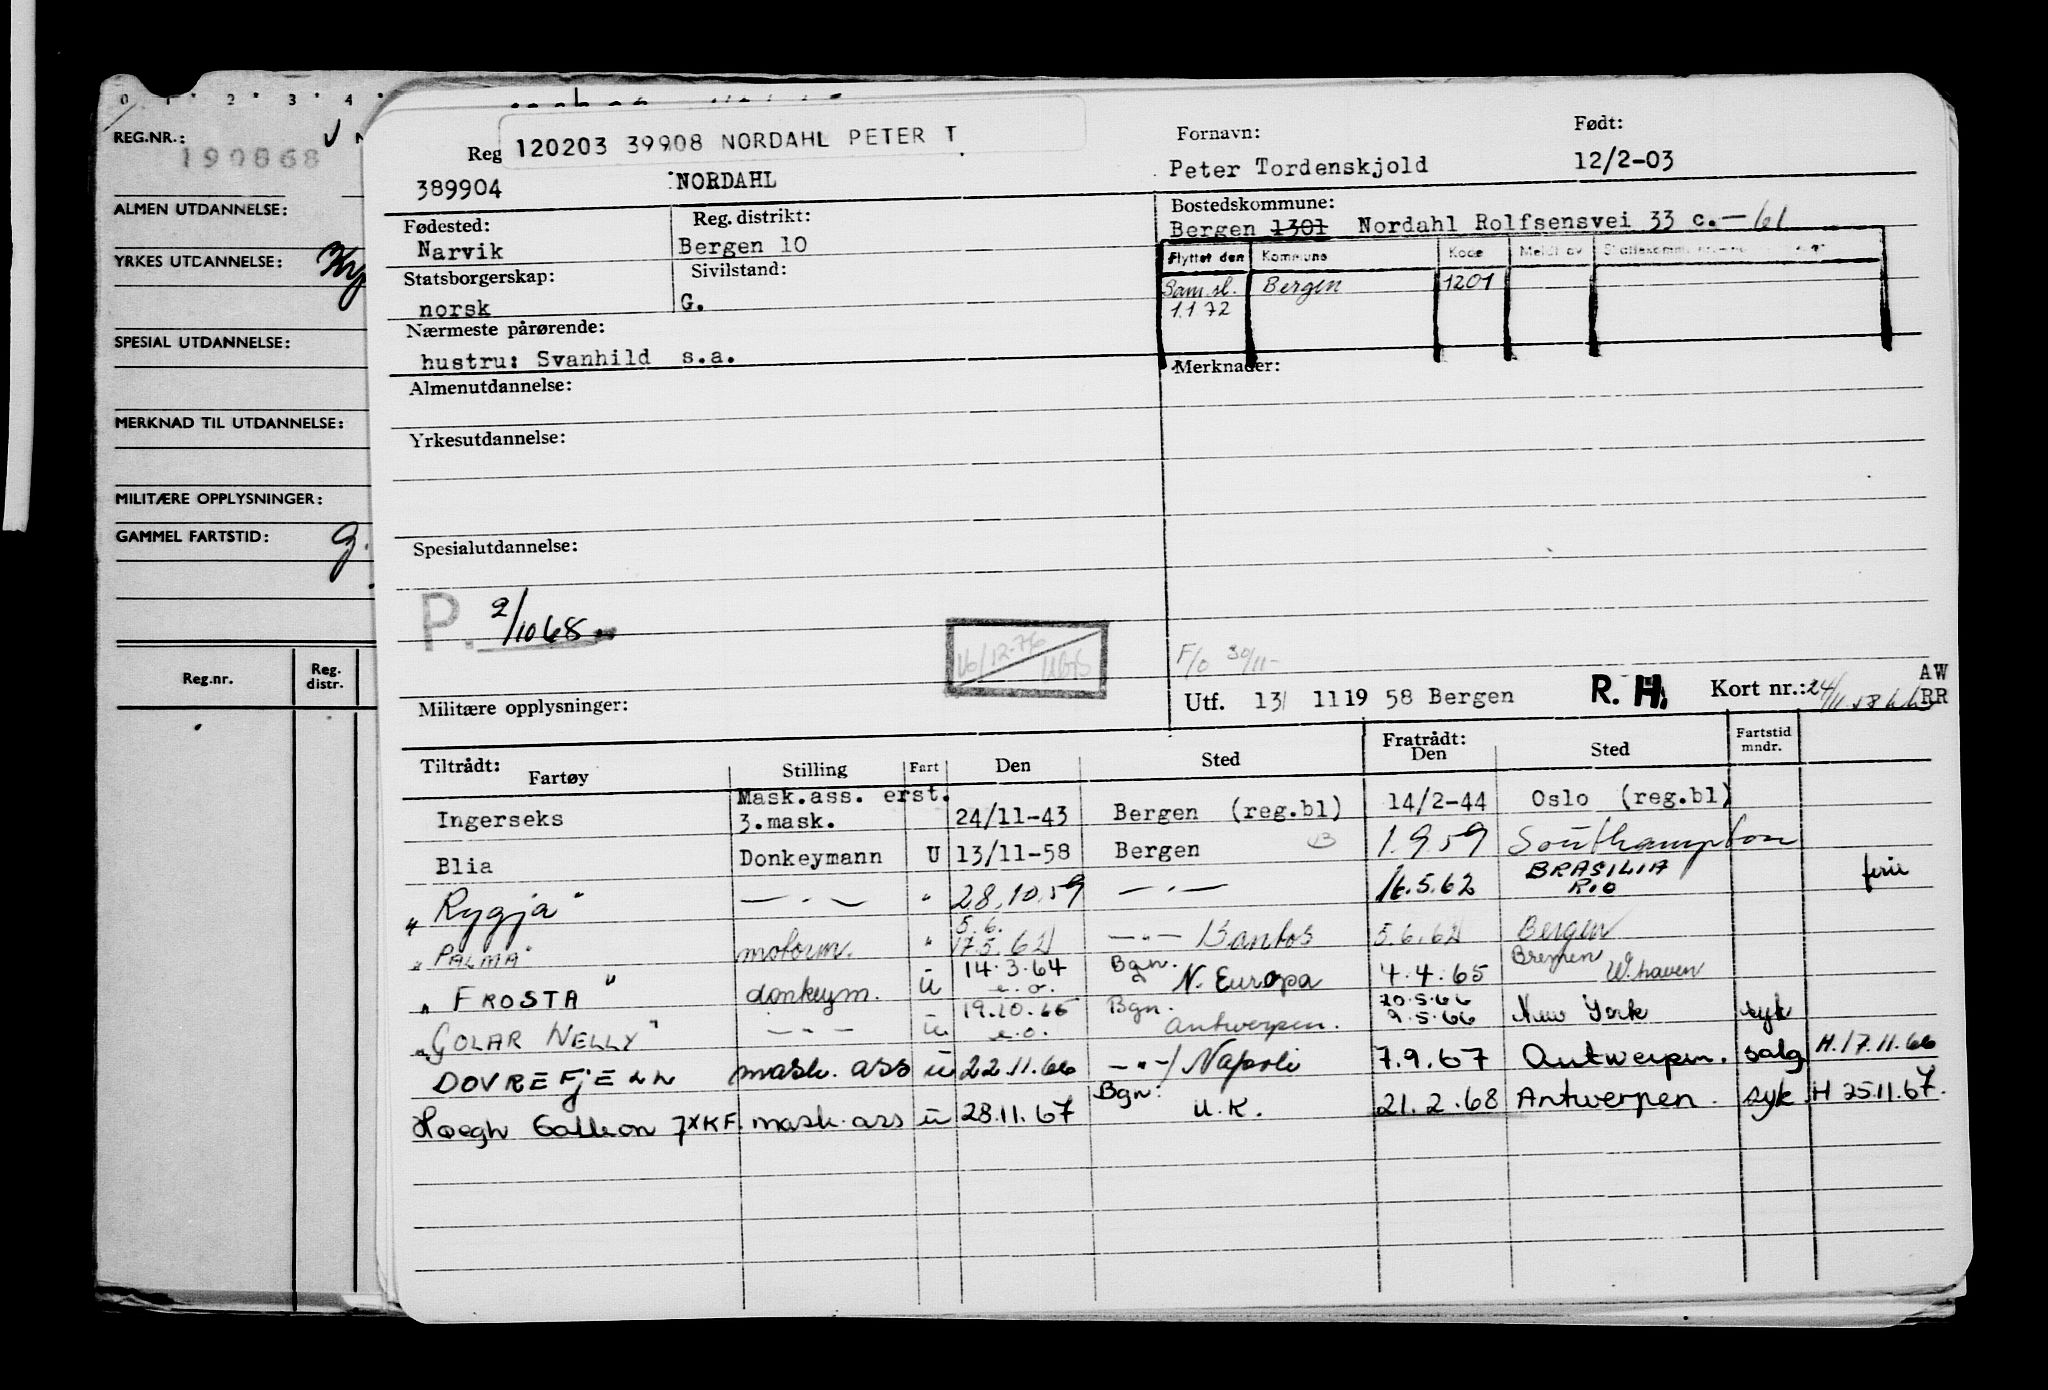 0 1 2 3 4
REG.NR.:
190868
ALMEN UTDANNELSE:
YRKES UTDANNELSE:
SPESIAL UTDANNELSE:
MERKNAD TIL UTDANNELSE:
MILITÆRE OPPLYSNINGER:
GAMMEL FARTSTID: g.
Reg.nr. Reg. distr.
Reg 120203 39908 NORDAHL PETER T
Fornavn: Født:
389904 NORDAHL Peter Tordenskjold 12/2-03
Fødested: Reg. distrikt: Bostedskommune:
Narvik Bergen 10 Bergen 1301 Nordahl Rolfsensvei 33 c. — 61
Statsborgerskap: Sivilstand:
Flyttet den Kommune Kode Meldt av
norsk G.
Sam.sl. Bergen 1201
1.1 72
Nærmeste pårørende:
hustru: Svanhild s.a.
Almenutdannelse: Merknader:
Yrkesutdannelse:
Spesialutdannelse:
P. 2/10 68
F/O 30/11-
Militære opplysninger: Utf. 13/ 11 19 58 Bergen R. H. Kort nr.: AW
RR
Tiltrådt: Fratrådt:
Fartøy Stilling Fart Den Sted Den Sted Fartstid mndr.
Mask.ass. erst.
Ingerseks 3.mask. 24/11-43 Bergen (reg.bl) 14/2-44 Oslo (reg.bl)
Blia Donkeymann U 13/11-58 Bergen 1.9.59 Southampton
"Rygja" — . — " 28.10.59 — . — 16.5.62 BRASILIA RIO ferie
5.6.
"PALMA" motorm. " 17.5.62 — " — Santos 5.6.62 Bergen
"FROSTA" donkeym. ü 14.3.64 e.o. Bgn. N. Europa 4.4.65 Bremen W.haven
20.5.66
"GOLAR NELLY" — " — ü 19.10.65 e.o. Bgn. Antwerpen. 9.5.66 New York syk
DOVREFJELL mask. ass ü 22.11.66 — " —/ Napoli 7.9.67 Antwerpen. salg H.17.11.66
Høegh Galleon JXKF. mask. ass ü 28.11.67 Bgn. U.K. 21.2.68 Antwerpen. syk H 25.11.67.